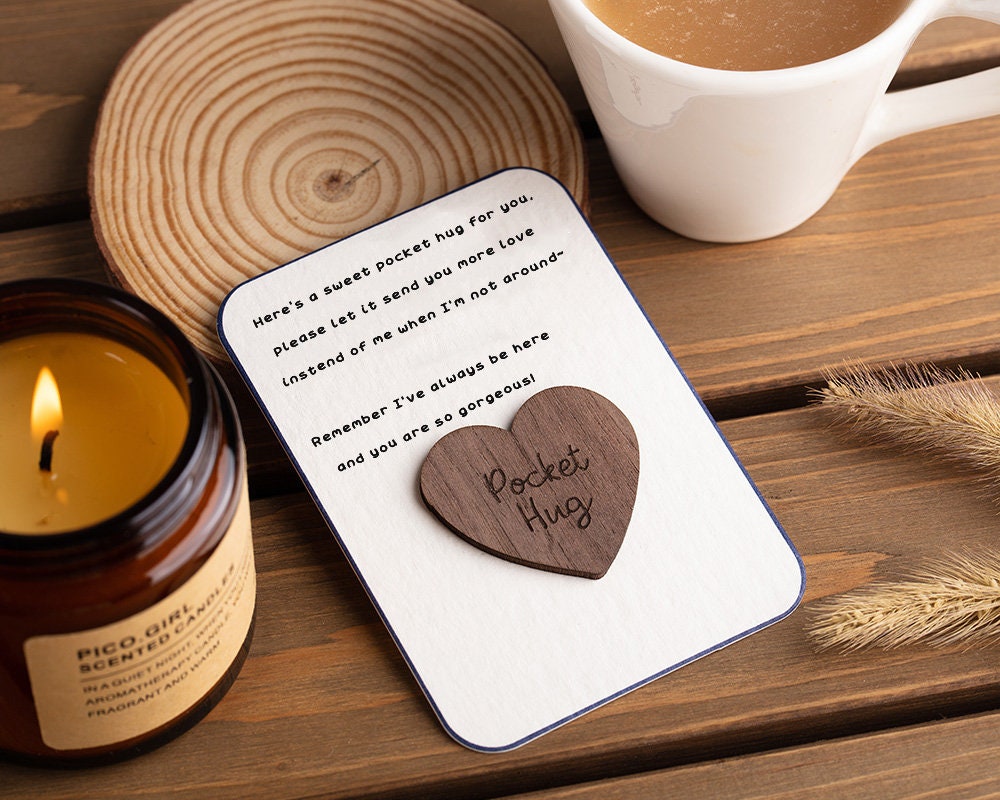 Here's a sweet pocket hug for you,
please let it send you more love
instend of me when I'm not around~
Remember I've always be here
and you are so gorgeous!
Pocket
Hug
PICO.GIRL
SCENTED CANDLES
IN A QUIET NIGHT, WHEN YOU
AROMATHERAPY CANDLE,
FRAGRANT AND WARM